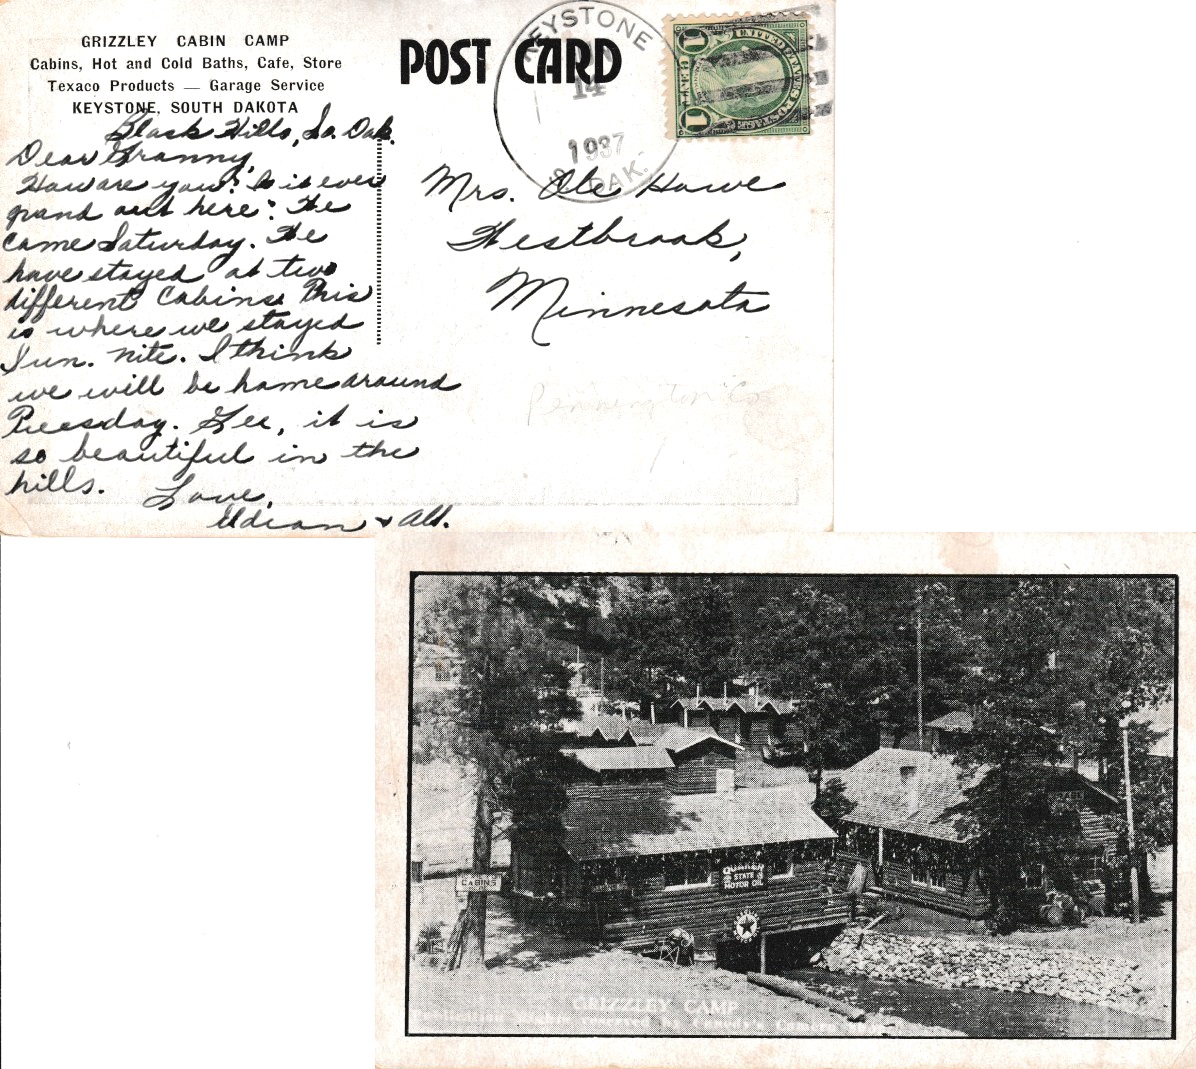 GRIZZLEY CABIN CAMP
Cabins, Hot and Cold Baths, Cafe, Store
Texaco Products — Garage Service
KEYSTONE, SOUTH DAKOTA
POST CARD
KEYSTONE
14
1937
S. DAK.
UNITED STATES POSTAGE
1 CENT 1
Black Hills, So. Dak.
Dear Granny,
How are you? It is ever
grand out here. We
came Saturday. We
have stayed at two
different Cabins. This
is where we stayed
Sun. nite. I think
we will be home around
Tuesday. Gee, it is
so beautiful in the
hills.
Love,
& Ad.
Mrs. Ole Howe
Westbrook,
Minnesota
Pennington Co.
CABINS
QUAKER
STATE
MOTOR OIL
GRIZZLEY CAMP
Publication Rights reserved by Canedy's Camera